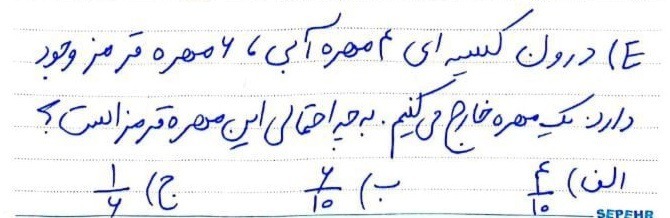 E) درون کیسه ای ۴ مهره آبی، ۶ مهره قرمز وجود
دارد. یک مهره خارج می کنیم. به چه احتمالی این مهره قرمز است؟
الف) ۴/۱۰ ب) ۶/۱۰ ج) ۱/۶
SEPEHR